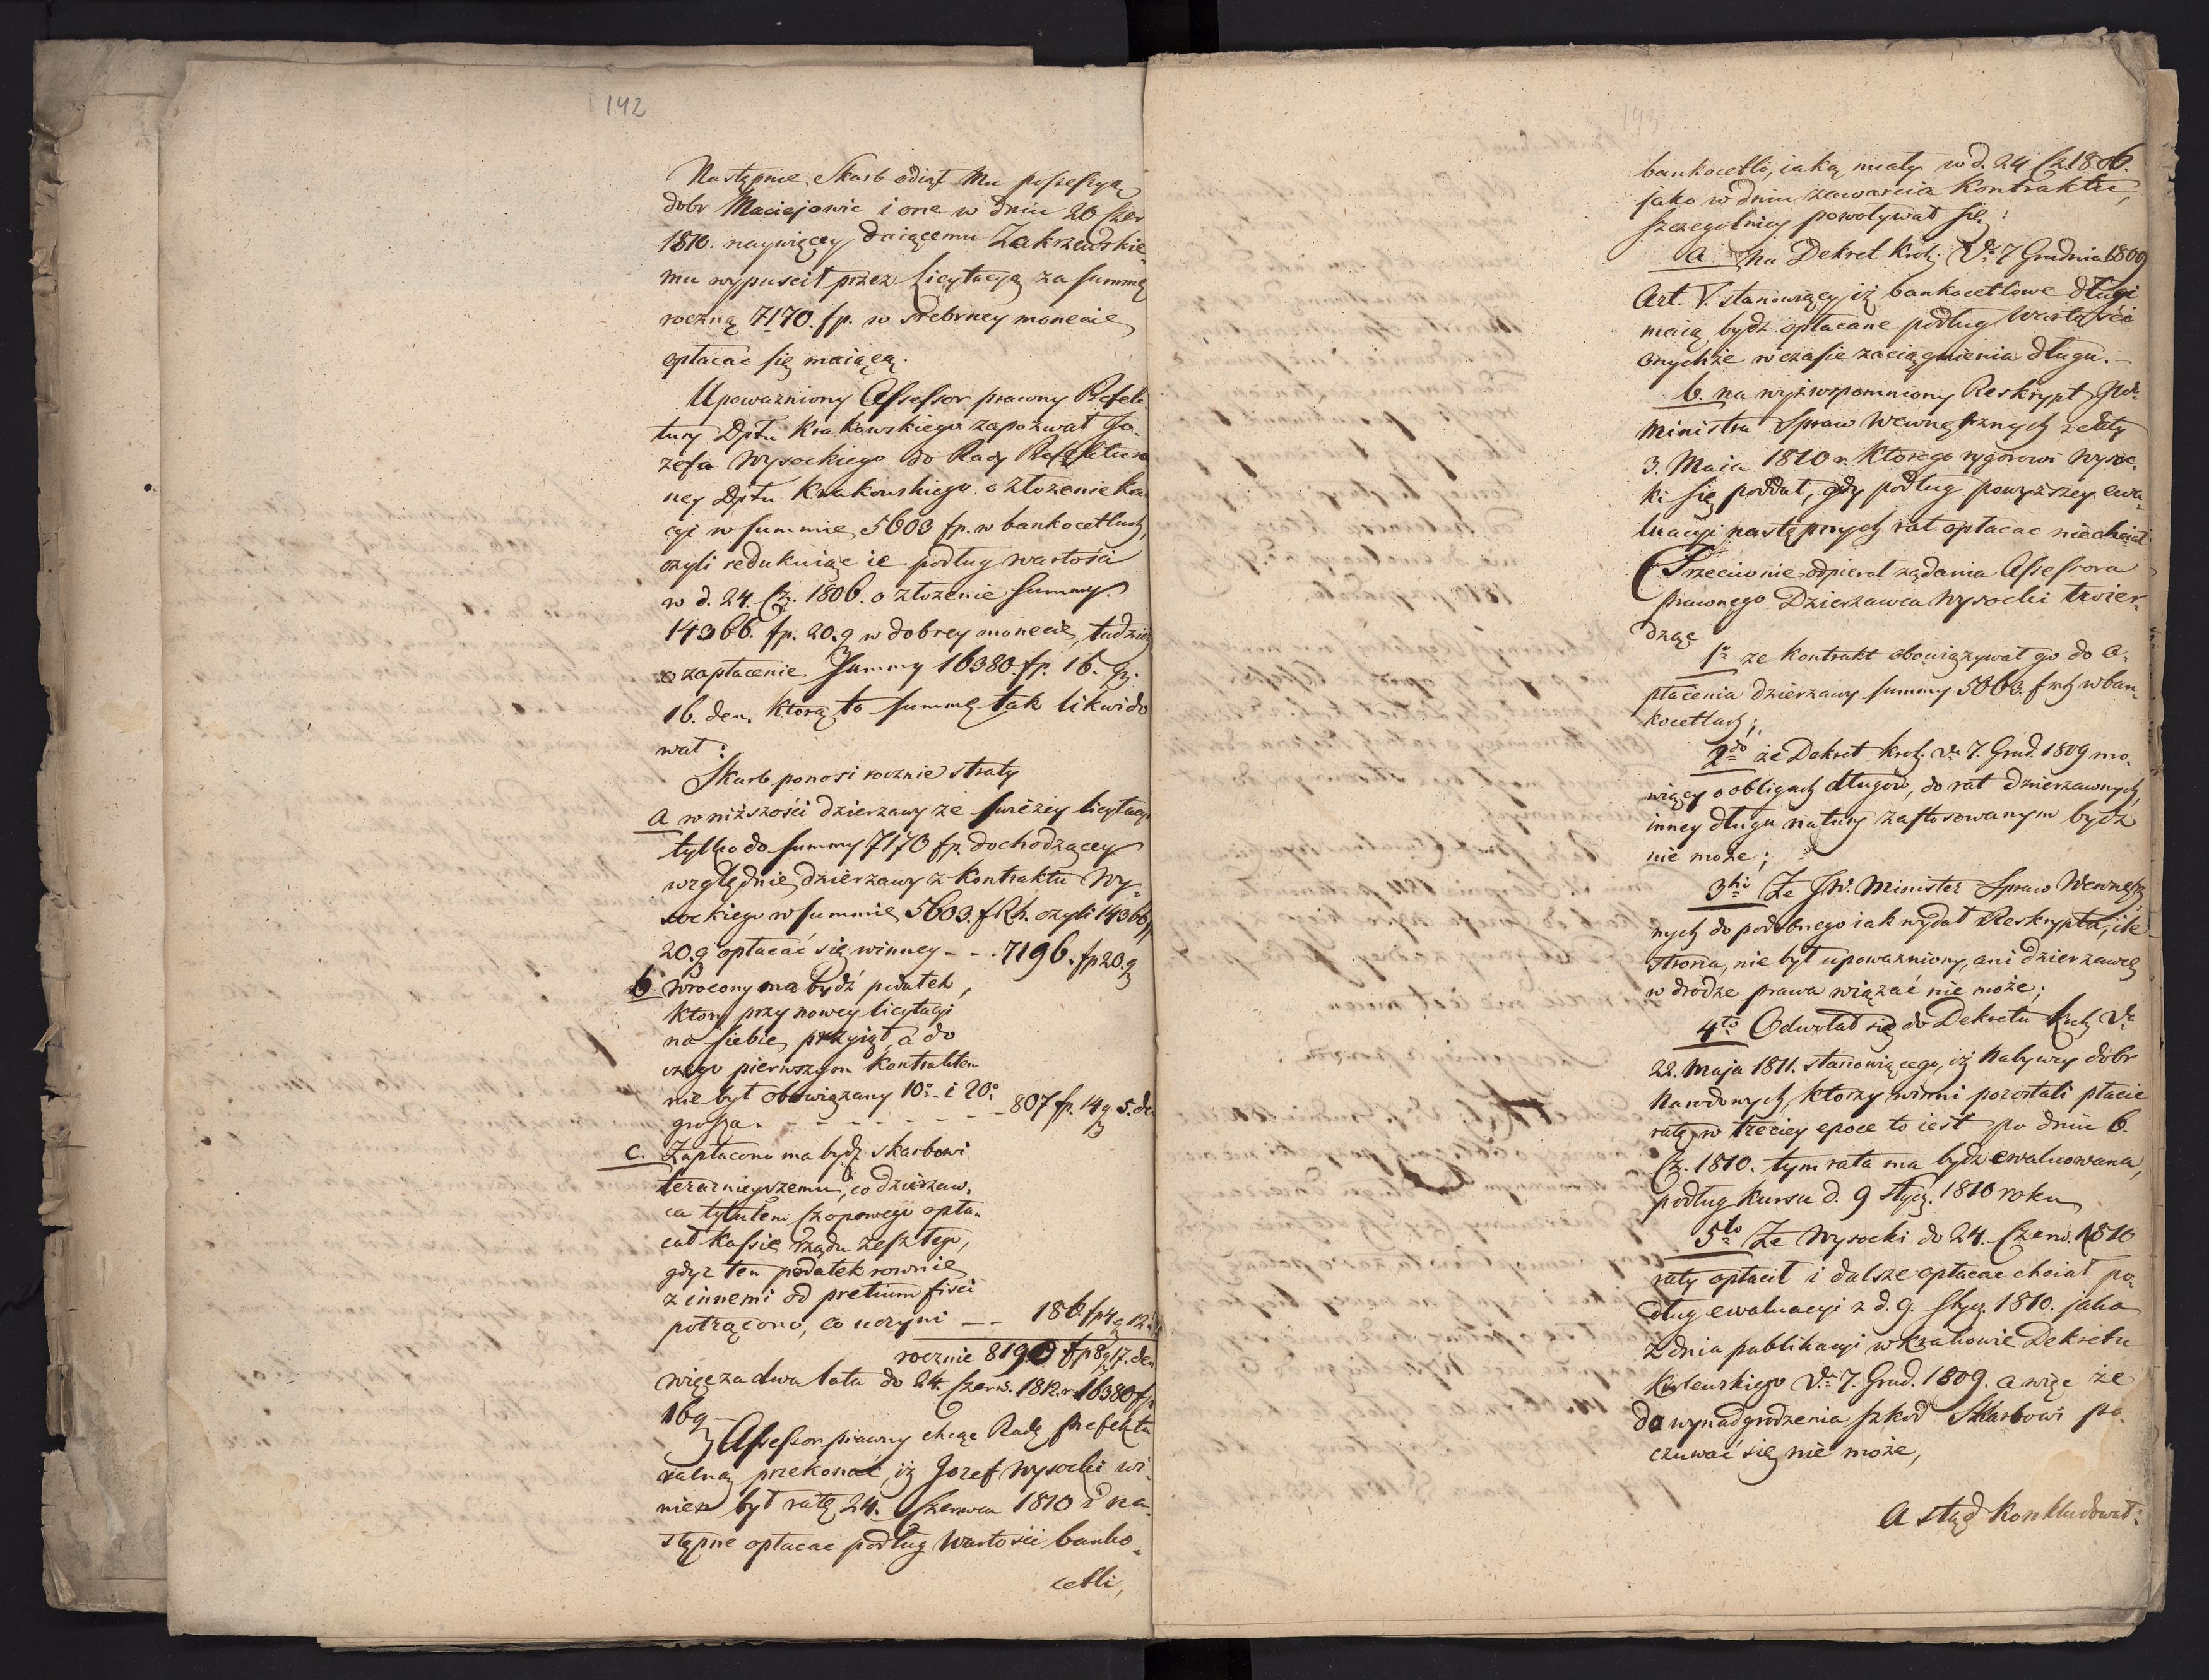 142
Następnie Skarb odiął Mu possessyą
dobr Maciejowic i one w dniu 20 Czer
1810. naywięcey daiącemu Zakrzewskie„
mu wypuscił przez licytacyą za summę
roczną 7170. fp. w srebrney monecie
opłacac się maiącą.
Upoważniony Assessor prawny Prefek„
tury Dptu Krakowskiego zapozwał Jo„
zefa Wysockiego do Rady Prefektural
ney Dptu Krakowskiego o złozenie kau
cyi w summie 5603 fp. w bankocetlach,
czyli redukuiąc ie podług wartości
w d. 24. Cz. 1806. o złozenie summy
14366. fp. 20. g w dobrey monecie, tudzież
o zapłacenie Summy 16380. fp. 16. gr.
16. den. ktorą to summę tak likwido
wał:
Skarb ponosi rocznie straty
a w niższości dzierzawy ze swieżey licytacyi
tylko do summy 7170 fp. dochodzącey
względnie dzierzawy z kontraktu Wy„
sockiego w summie 5603. fRh. czyli 14366 fp
20. g opłacać się winney - - - 7196. fp 20. g
b Wrocony ma bydź podatek,
ktory przy nowey licytacyi
na siebie przyiął, a do
czego pierwszym kontraktem
nie był obowiązany 10o i 20o
grosza. - - - - - - - 807 fp. 14 g 5. de
c. Zapłacono ma bydź skarbowi
teraznieyszemu, co dzierzaw„
ca tytułem Czopowego opła„
cał kassie rządu zeszłego,
gdyz ten podatek rownie
z innemi od pretium fisci
potrącono, co uczyni - - 186. fp 4 g 12.
rocznie 8190 fp 8 g 17. den
więc za dwa lata do 24. Czerw. 1812. r. 16380 fp
16 g
Assessor prawny chcąc Radę prefektu
ralną przekonać, iż Jozef Wysocki wi„
nien był ratę 24. Czerwca 1810 i na„
stępne opłacac podług wartości banko„
cetli,
193
bankocetli, iaką miały w d. 24 Cz. 1806.
jako w dniu zawarcia Kontraktu,
szczegolniey powoływał się:
a na Dekret Król. de 7 Grudnia 1809
Art. V. stanowiący, iż bankocetlowe długi
maią bydz opłacane podług wartości
onychże w czasie zaciągnienia długu. -
b. na wyżwspomniony Reskrypt JW.
Ministra Spraw Wewnętrznych z daty
3. Maia 1810 r. ktorego rygorowi Wysoc„
ki się poddał, gdy podług powyższey ewa„
luacyi następnych rat opłacac niechciał
Przeciwnie odpierał ządania Assessora
prawnego Dzierzawca Wysocki twier„
dząc
1o ze kontrakt obowiązywał go do o„
płacenia dzierzawy summy 5603. frh w ban„
kocetlach;
2do że Dekret Król. de 7. Grud. 1809 mo„
wiący o obligach długów, do rat dzierzawnych,
inney długu natury zastosowanym bydź
nie może;
3tio Że JW. Minister Spraw Wewnętrz
nych do podobnego iak wydał Reskryptu, ile
strona, nie był upoważniony, ani dzierzawcę
w drodze prawa wiązać nie może;
4to Odwołał się do Dekretu Król. de
22. Maja 1811. stanowiącego, iż Nabywcy dobr
Narodowych, ktorzy winni pozostali płacie
ratę w trzeciey epoce to iest po dniu 6.
Cz. 1810. tym rata ma bydz ewaluowana,
podług kursu d. 9 Stycz. 1810 roku
5to Że Wysocki do 24. Czerw. 1810
raty opłacił i dalsze opłacac chciał po„
dług ewaluacyi z d. 9. Stycz. 1810. jako
z dnia publikacyi w Krakowie Dekretu
Królewskiego de 7. Grud. 1809. a więc że
do wynadgrodzenia szkod Skarbowi po„
czuwać się nie może,
A stąd konkludował: